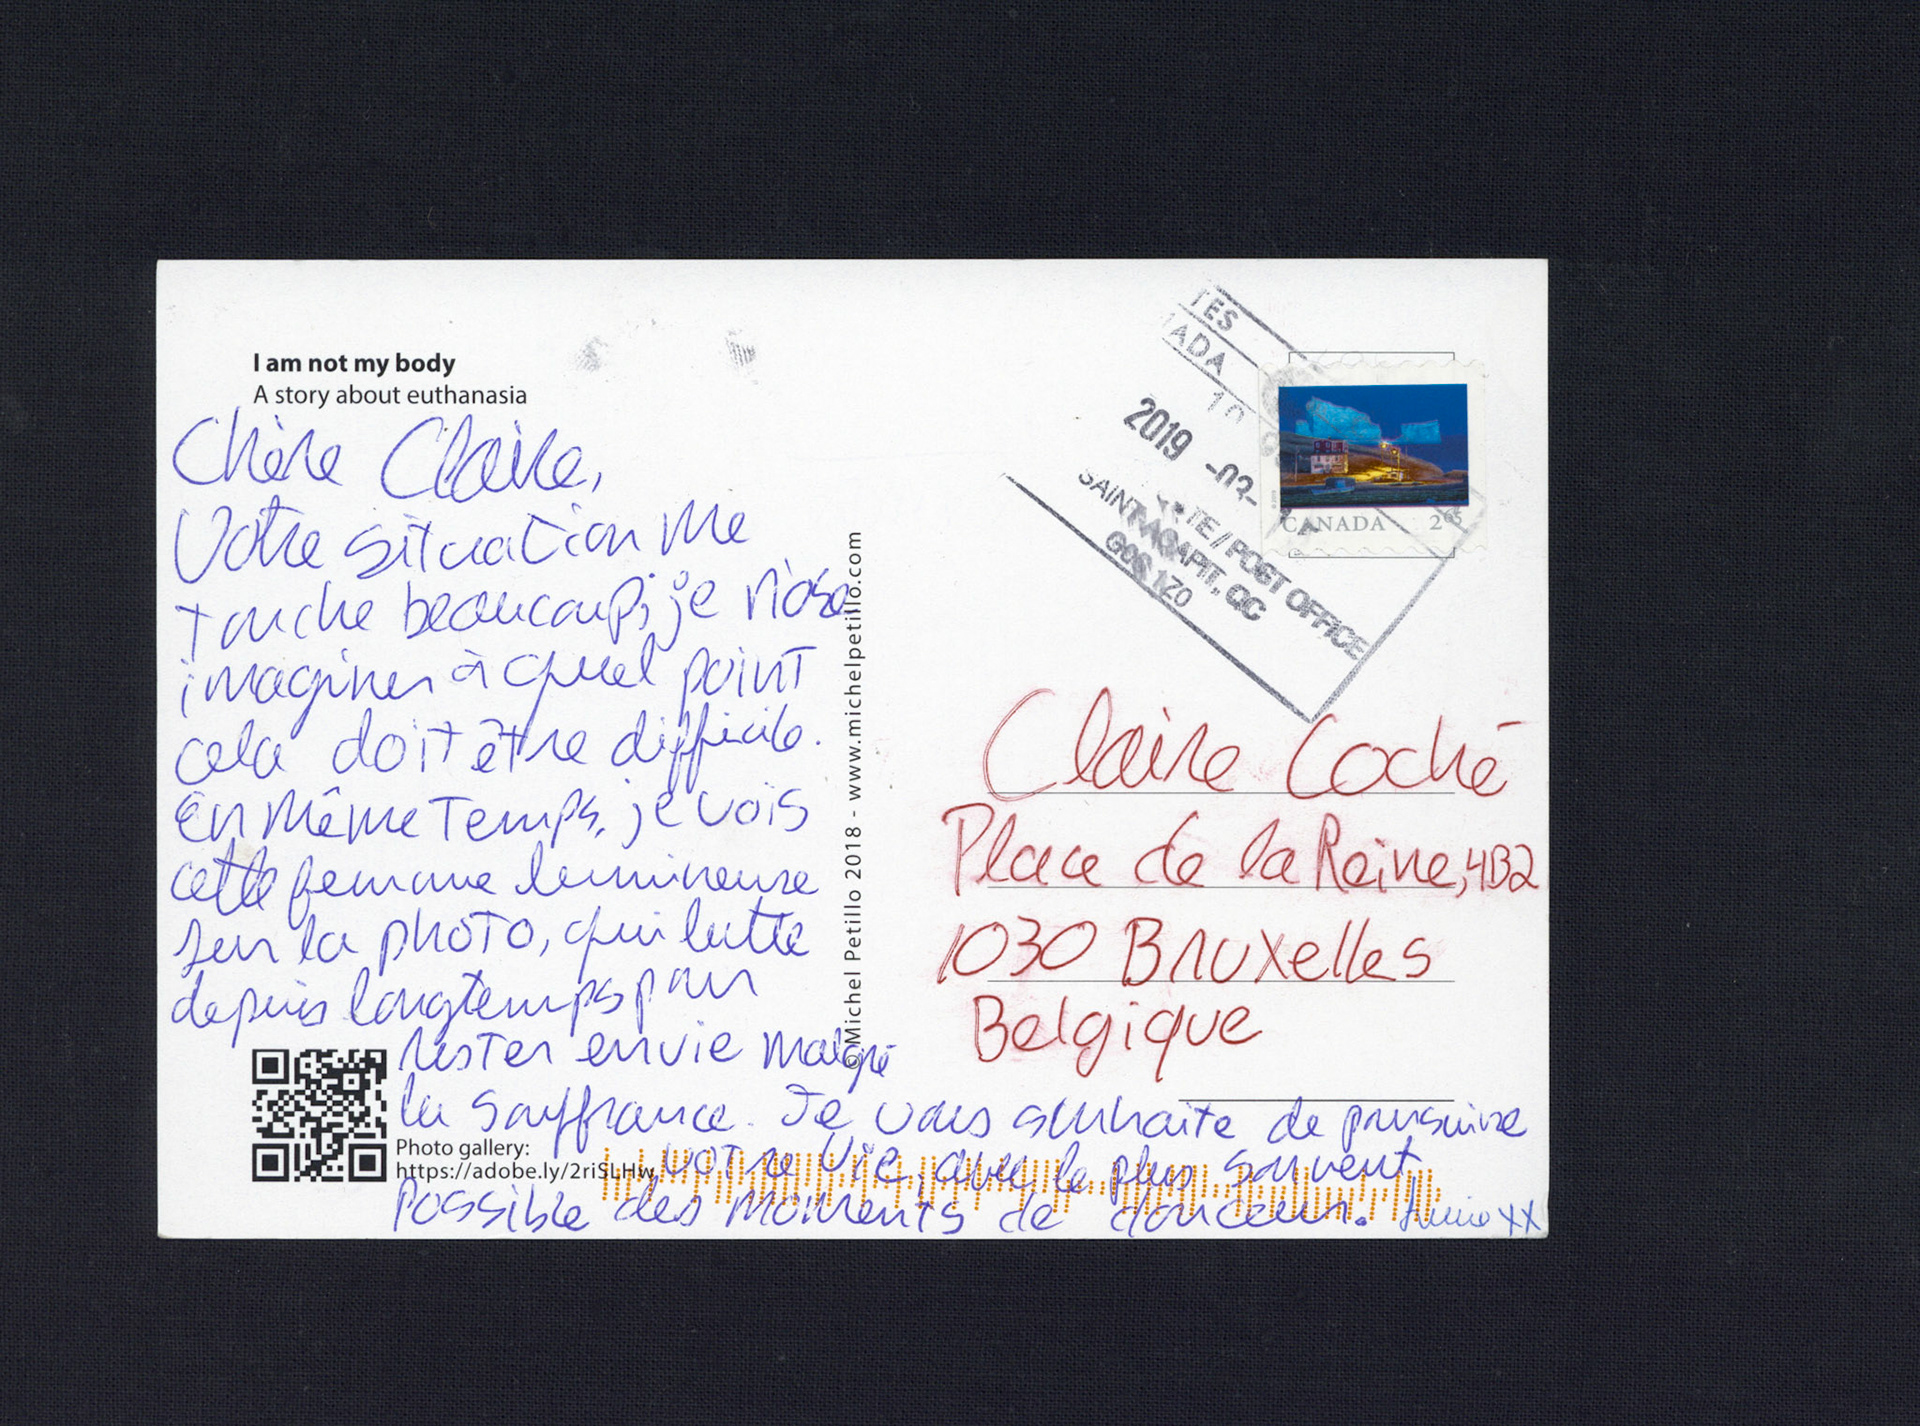 I am not my body
A story about euthanasia
Chère Claire,
Votre situation me
touche beaucoup, je n'ose
imaginer à quel point
cela doit être difficile.
En même temps, je vois
cette femme lumineuse
sur la photo, qui lutte
depuis longtemps pour
rester en vie malgré
la souffrance. Je vous souhaite de poursuivre
votre vie, avec le plus souvent
possible des moments de douceur.
XX
Photo gallery:
https://adobe.ly/2riSLHw
© Michel Petillo 2018 - www.michelpetillo.com
TES
ADA
10
2019 -03-
TE / POST OFFICE
SAINT-AGAPIT, QC
G0S 1Z0
CANADA 265
Claire Coché
Place de la Reine, 4B2
1030 Bruxelles
Belgique